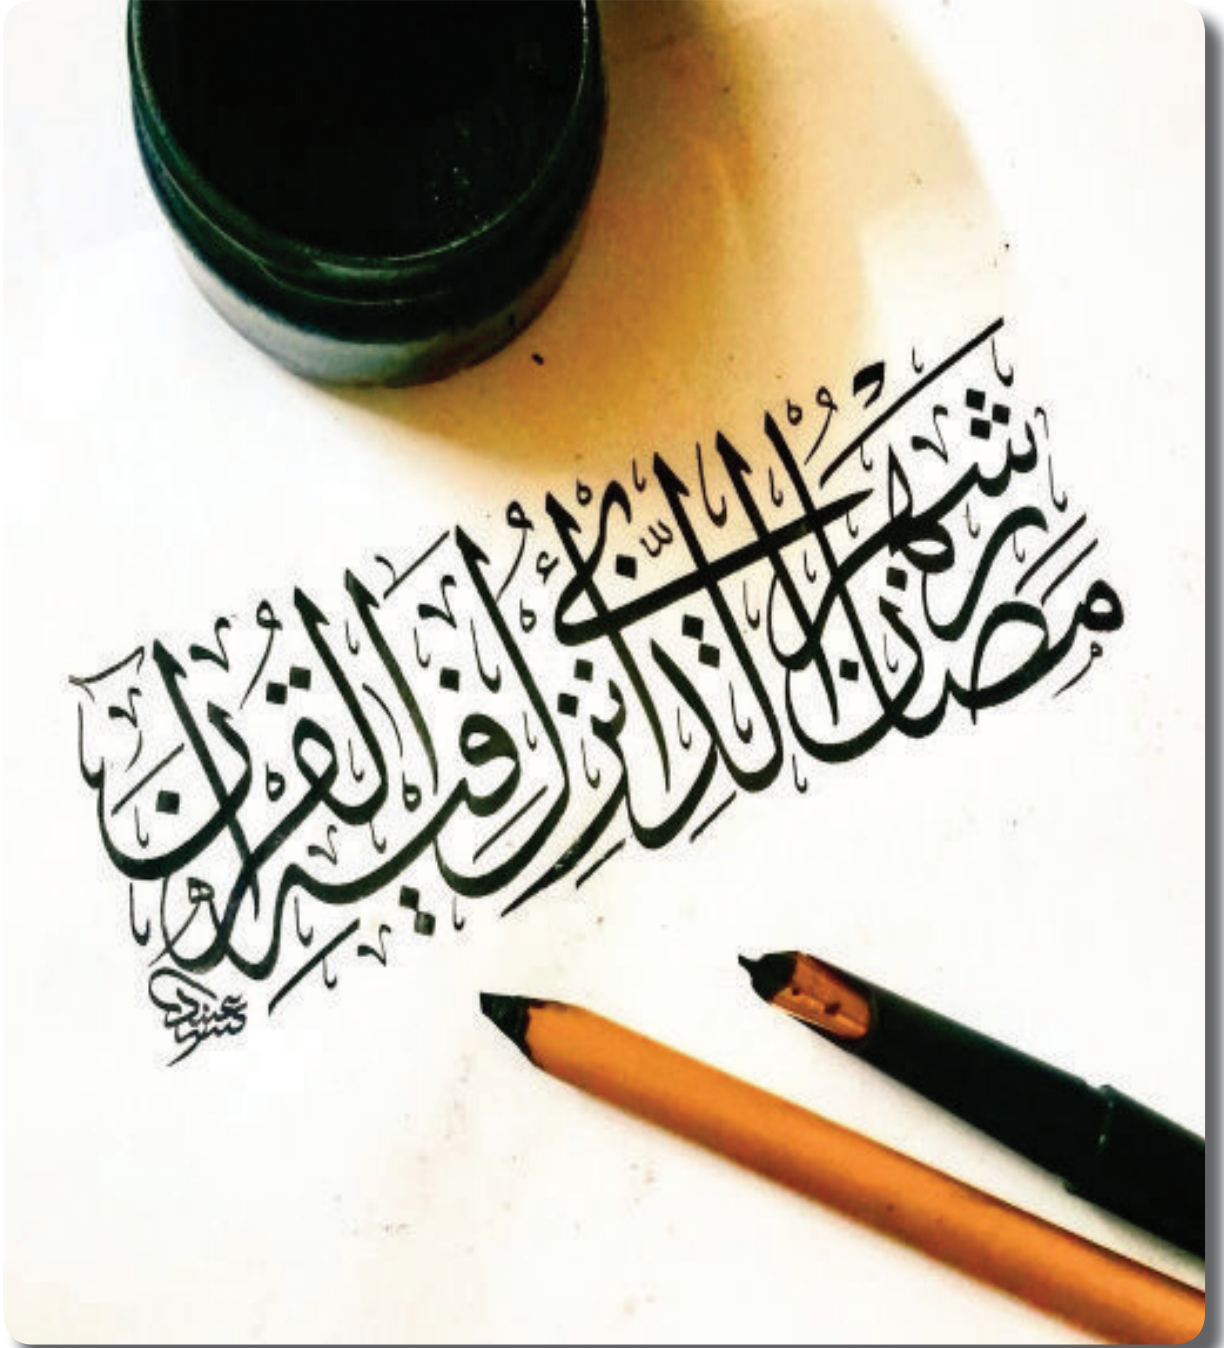 شَهْرُ رَمَضَانَ الَّذِي أُنْزِلَ فِيهِ الْقُرْآنُ